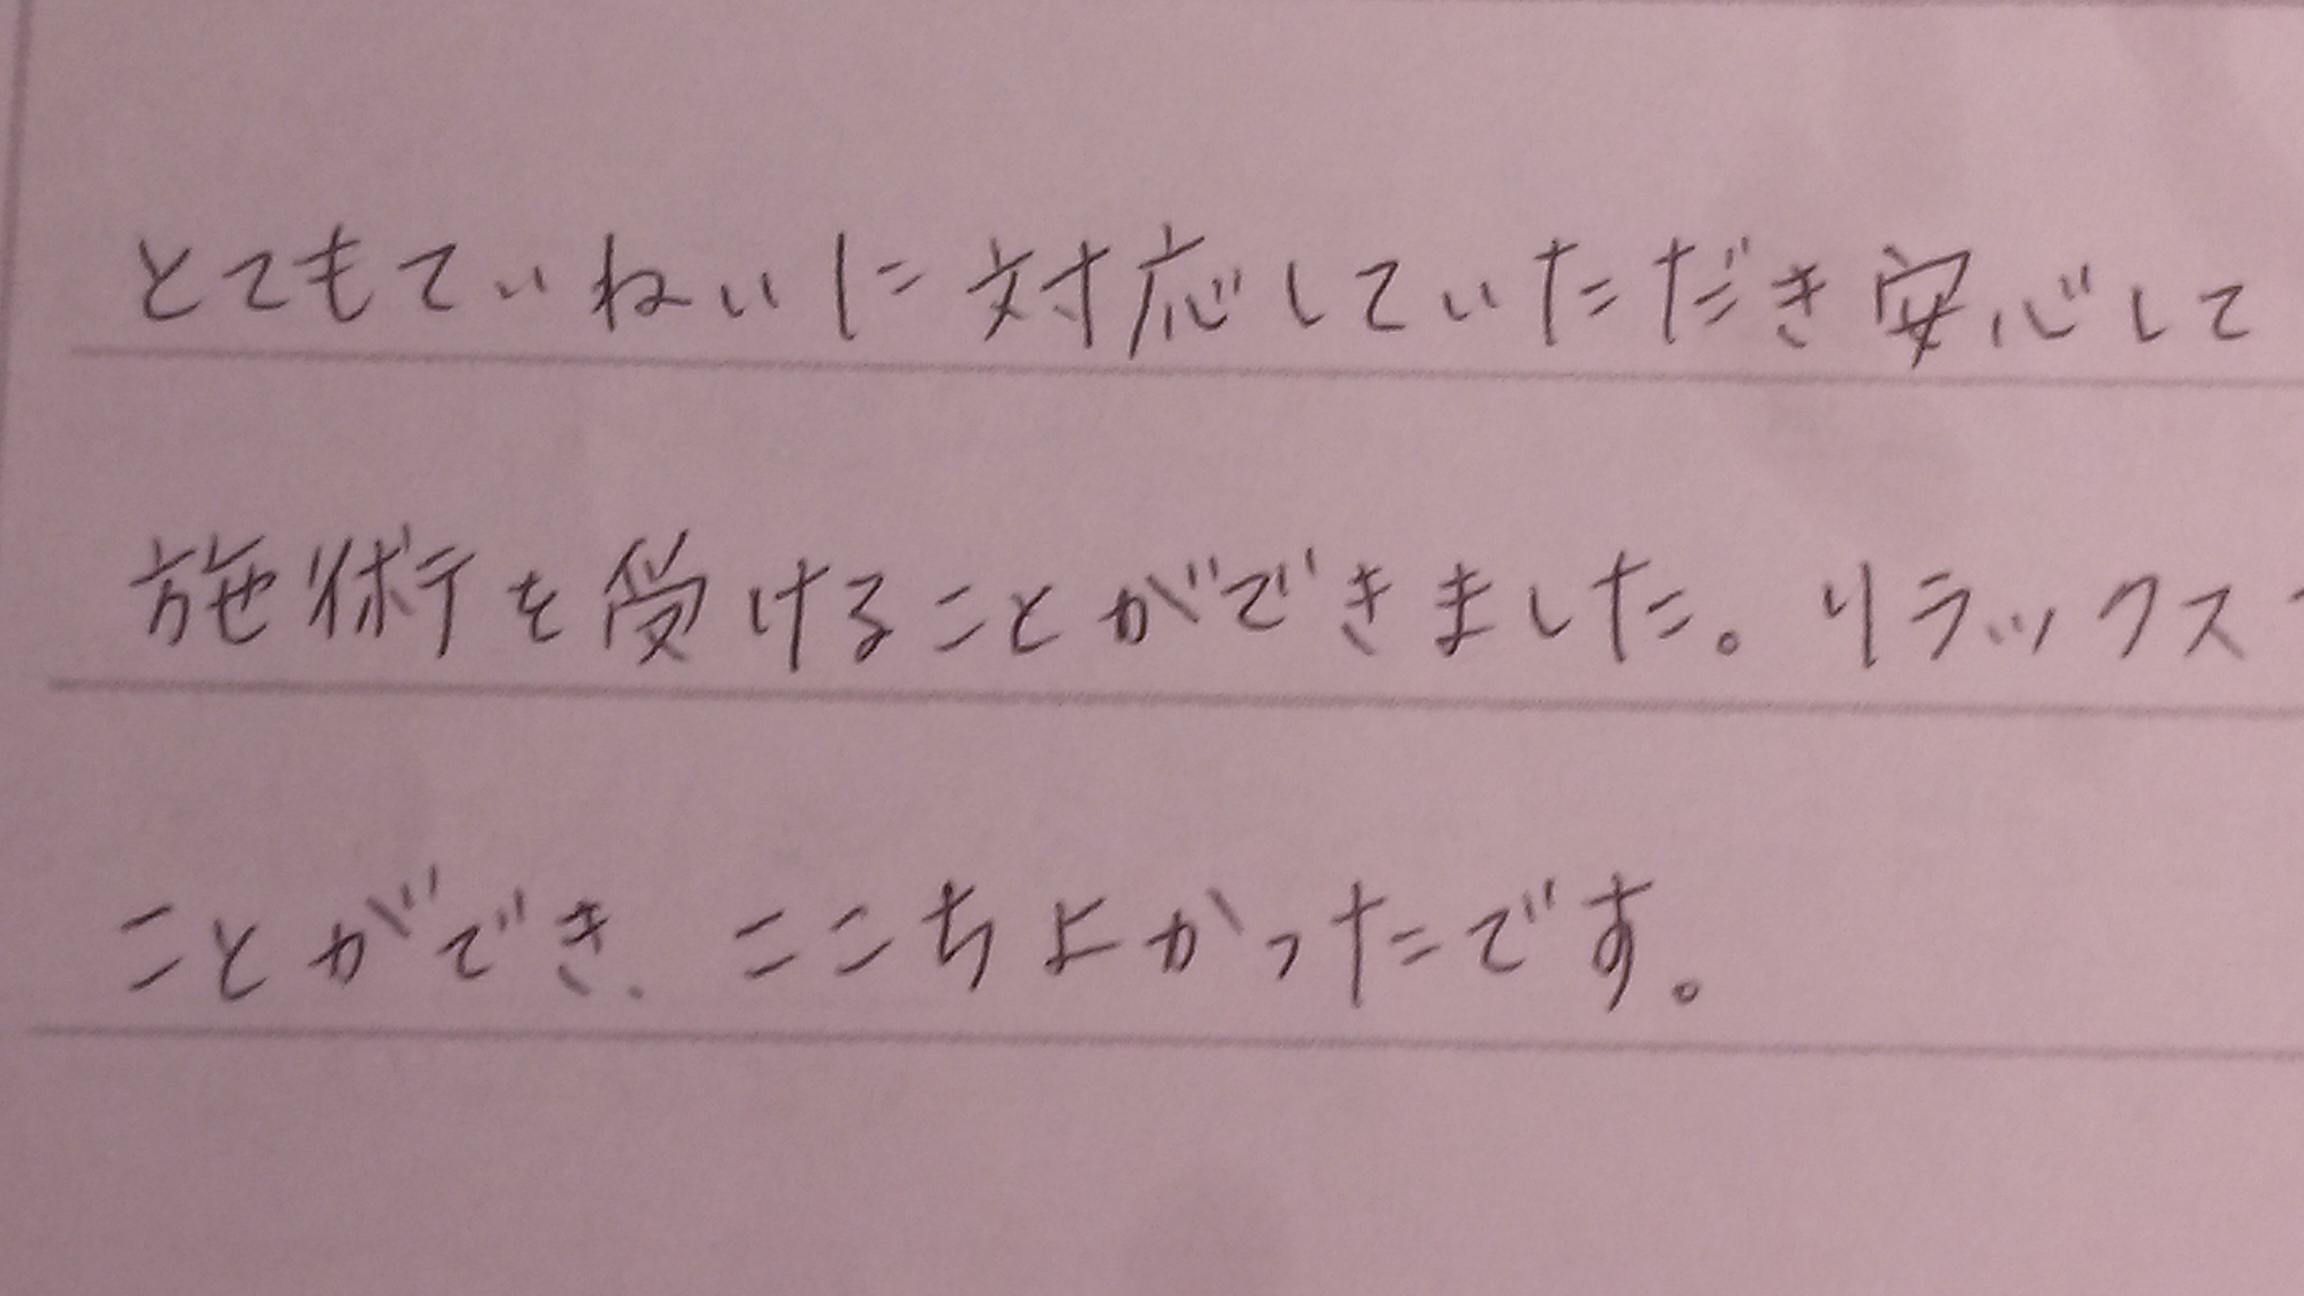 とてもていねいに対応していただき安心して
施術を受けることができました。リラックス
ことができ、ここちよかったです。